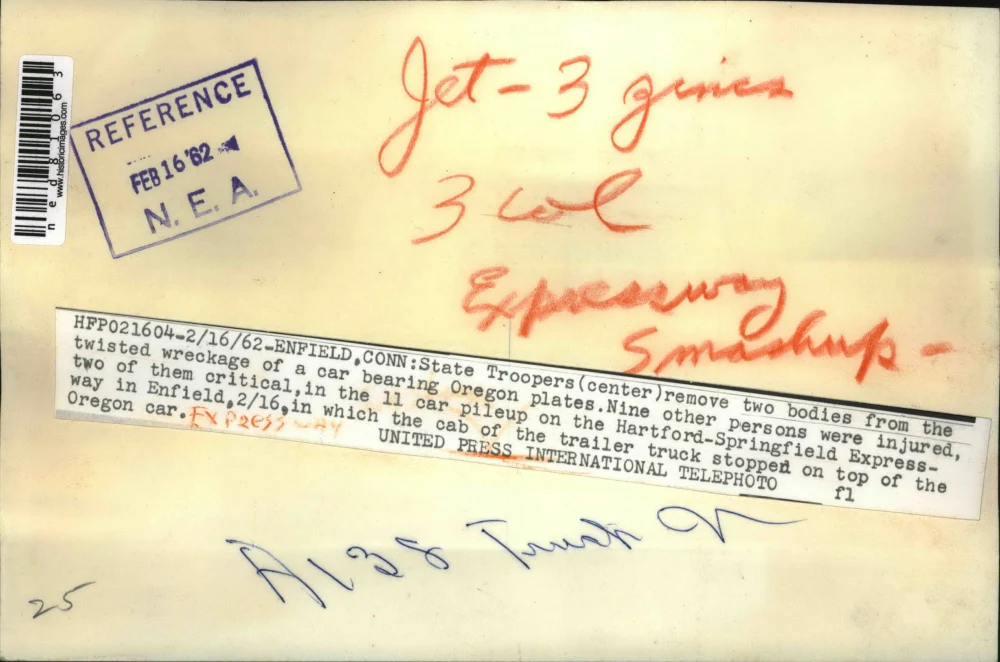 Jet - 3
3 col
Expressway
Smashup -
REFERENCE
FEB 16 '62
N. E. A.
ned81063
www.historicimages.com
HFP021604-2/16/62-ENFIELD,CONN:State Troopers(center)remove two bodies from the
twisted wreckage of a car bearing Oregon plates.Nine other persons were injured,
two of them critical,in the 11 car pileup on the Hartford-Springfield Express-
way in Enfield,2/16,in which the cab of the trailer truck stopped on top of the
Oregon car. EXPRESSWAY
UNITED PRESS INTERNATIONAL TELEPHOTO f1
A138 Truck
25